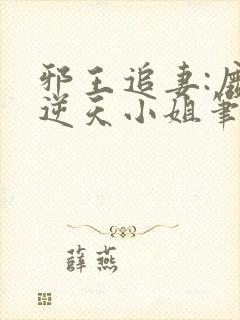 邪王追妻:
逆天小姐筆
薛燕